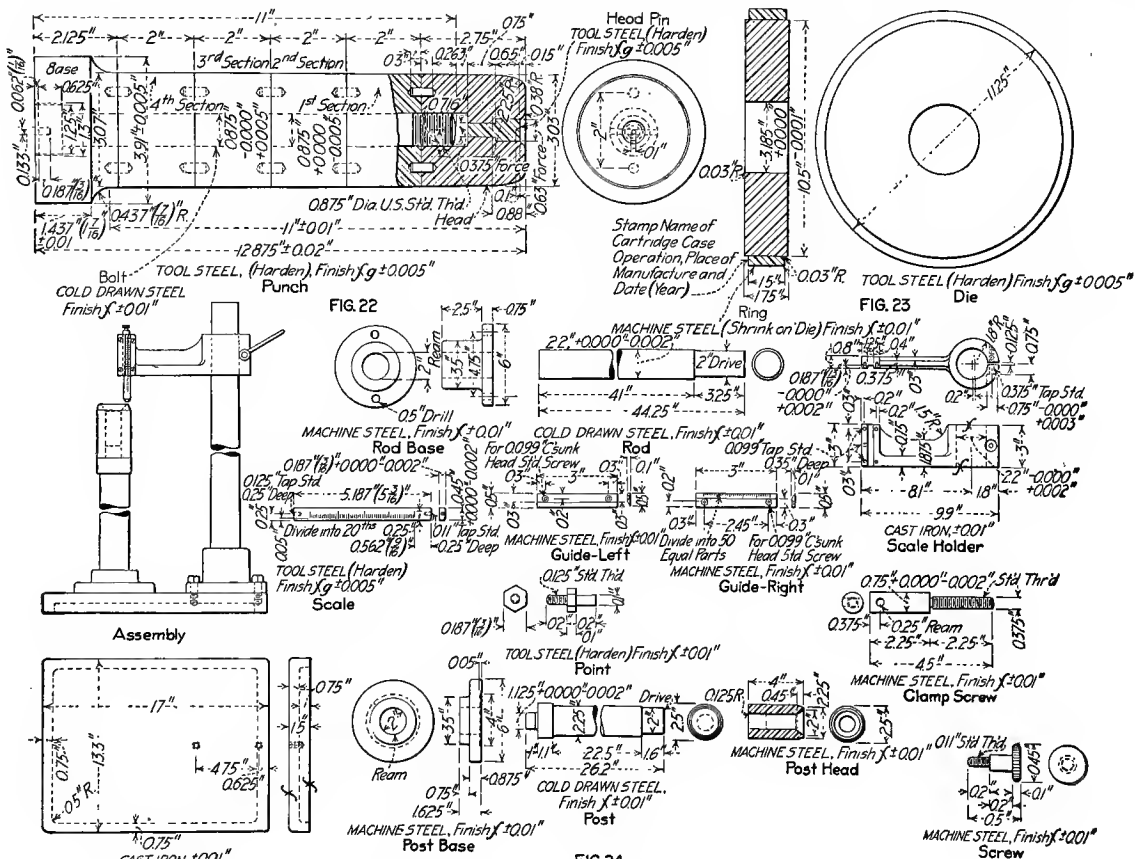 11"
2.125"
2"
2"
2"
2"
2.75"
0.75"
0.3"
0.263"
0.65"
0.15"
0.062"(1/16)
Base
0.625"
3rd Section
2nd Section
4th Section
1st Section
0.716"
2.25"R.
0.38"R.
0.133"
1.25"
1.3"
3.07"
3.91"±0.005"
0.875"
-0.000"
+0.005"
0.875"
+0.000
-0.005"
3.03"
0.375"Force
0.63"Force
0.1"
0.88"
0.187"(3/16)
0.437"(7/16)R.
0.875" Dia. U.S. Std. Th'd.
Head
1.437"(7/16)
±0.01
11"±0.01"
12.875"±0.02"
TOOL STEEL, (Harden), Finish fg ±0.005"
Punch
Bolt
COLD DRAWN STEEL
Finish f ±0.01"
FIG. 22
Head Pin
TOOL STEEL (Harden)
Finish fg ±0.005"
2"
0.1"
0.03"R.
3.185"
+0.000
-0.001"
10.5"
Stamp Name of
Cartridge Case
Operation, Place of
Manufacture and
Date (Year)
0.03"R.
1.5"
1.75"
Ring
MACHINE STEEL (Shrink on Die) Finish f ±0.01"
11.25"
TOOL STEEL (Harden) Finish fg ±0.005"
Die
FIG. 23
Assembly
2.5"
0.75"
Ream
2"
3.5"
4.75"
6"
0.5" Drill
MACHINE STEEL, Finish f ±0.01"
Rod Base
2.2"+0.000"-0.002"
2" Drive
41"
3.25"
44.25"
COLD DRAWN STEEL, Finish f ±0.01"
Rod
0.8"
1.25"
0.4"
1.8"R.
0.125"
0.75"
0.187"(3/16)
-0.000"
+0.002"
0.375"
0.5"
0.2"
0.375" Tap Std.
0.75"-0.000"
+0.003"
0.3"
0.2"
0.2"
1.5"R.
0.75"
1.875"
3"
3"
0.3"
8.1"
1.8"
2.2"-0.000
+0.002"
9.9"
CAST IRON, ±0.01"
Scale Holder
0.187"(3/16)+0.000"-0.002"
0.125" Tap Std.
0.25" Deep
5.187"(5 3/16)
0.45"
+0.000-0.002"
0.25"
0.05"
Divide into 20ths
0.25"
0.562"(9/16)
0.11" Tap Std.
0.25" Deep
TOOL STEEL (Harden)
Finish fg ±0.005"
Scale
For 0.099" C'sunk
Head Std. Screw
0.3"
3"
0.3"
0.1"
0.5"
0.3"
0.2"
0.5"
MACHINE STEEL, Finish f ±0.01"
Guide-Left
0.099" Tap Std.
0.35" Deep
3"
0.1"
0.2"
0.5"
0.3"
2.45"
0.3"
Divide into 50
Equal Parts
For 0.099" C'sunk
Head Std. Screw
MACHINE STEEL, Finish f ±0.01"
Guide-Right
0.125" Std. Th'd.
0.187"(3/16)
0.2"
0.2"
0.1"
0.1"
TOOL STEEL (Harden) Finish f ±0.01"
Point
0.75"+0.000"-0.002"
Std. Thr'd
0.375"
0.25" Ream
2.25"
2.25"
0.375"
4.5"
MACHINE STEEL, Finish f ±0.01"
Clamp Screw
17"
0.75"
13.3"
0.75"
1.5"
4.75"
0.625"
0.5"R.
0.75"
CAST IRON, ±0.01"
0.05"
2"
Ream
3.5"
4"
6"
0.75"
0.875"
1.625"
MACHINE STEEL, Finish f ±0.01"
Post Base
1.125"+0.000"-0.002"
Drive
2.25"
2"
2.5"
1.1"
22.5"
1.6"
26.2"
COLD DRAWN STEEL,
Finish f ±0.01"
Post
4"
0.45"
0.125R.
2.25"
1.2"
2.5"
MACHINE STEEL, Finish f ±0.01"
Post Head
0.11" Std. Th'd.
0.45"
0.2"
0.1"
0.2"
0.5"
MACHINE STEEL, Finish f ±0.01"
Screw
FIG. 24